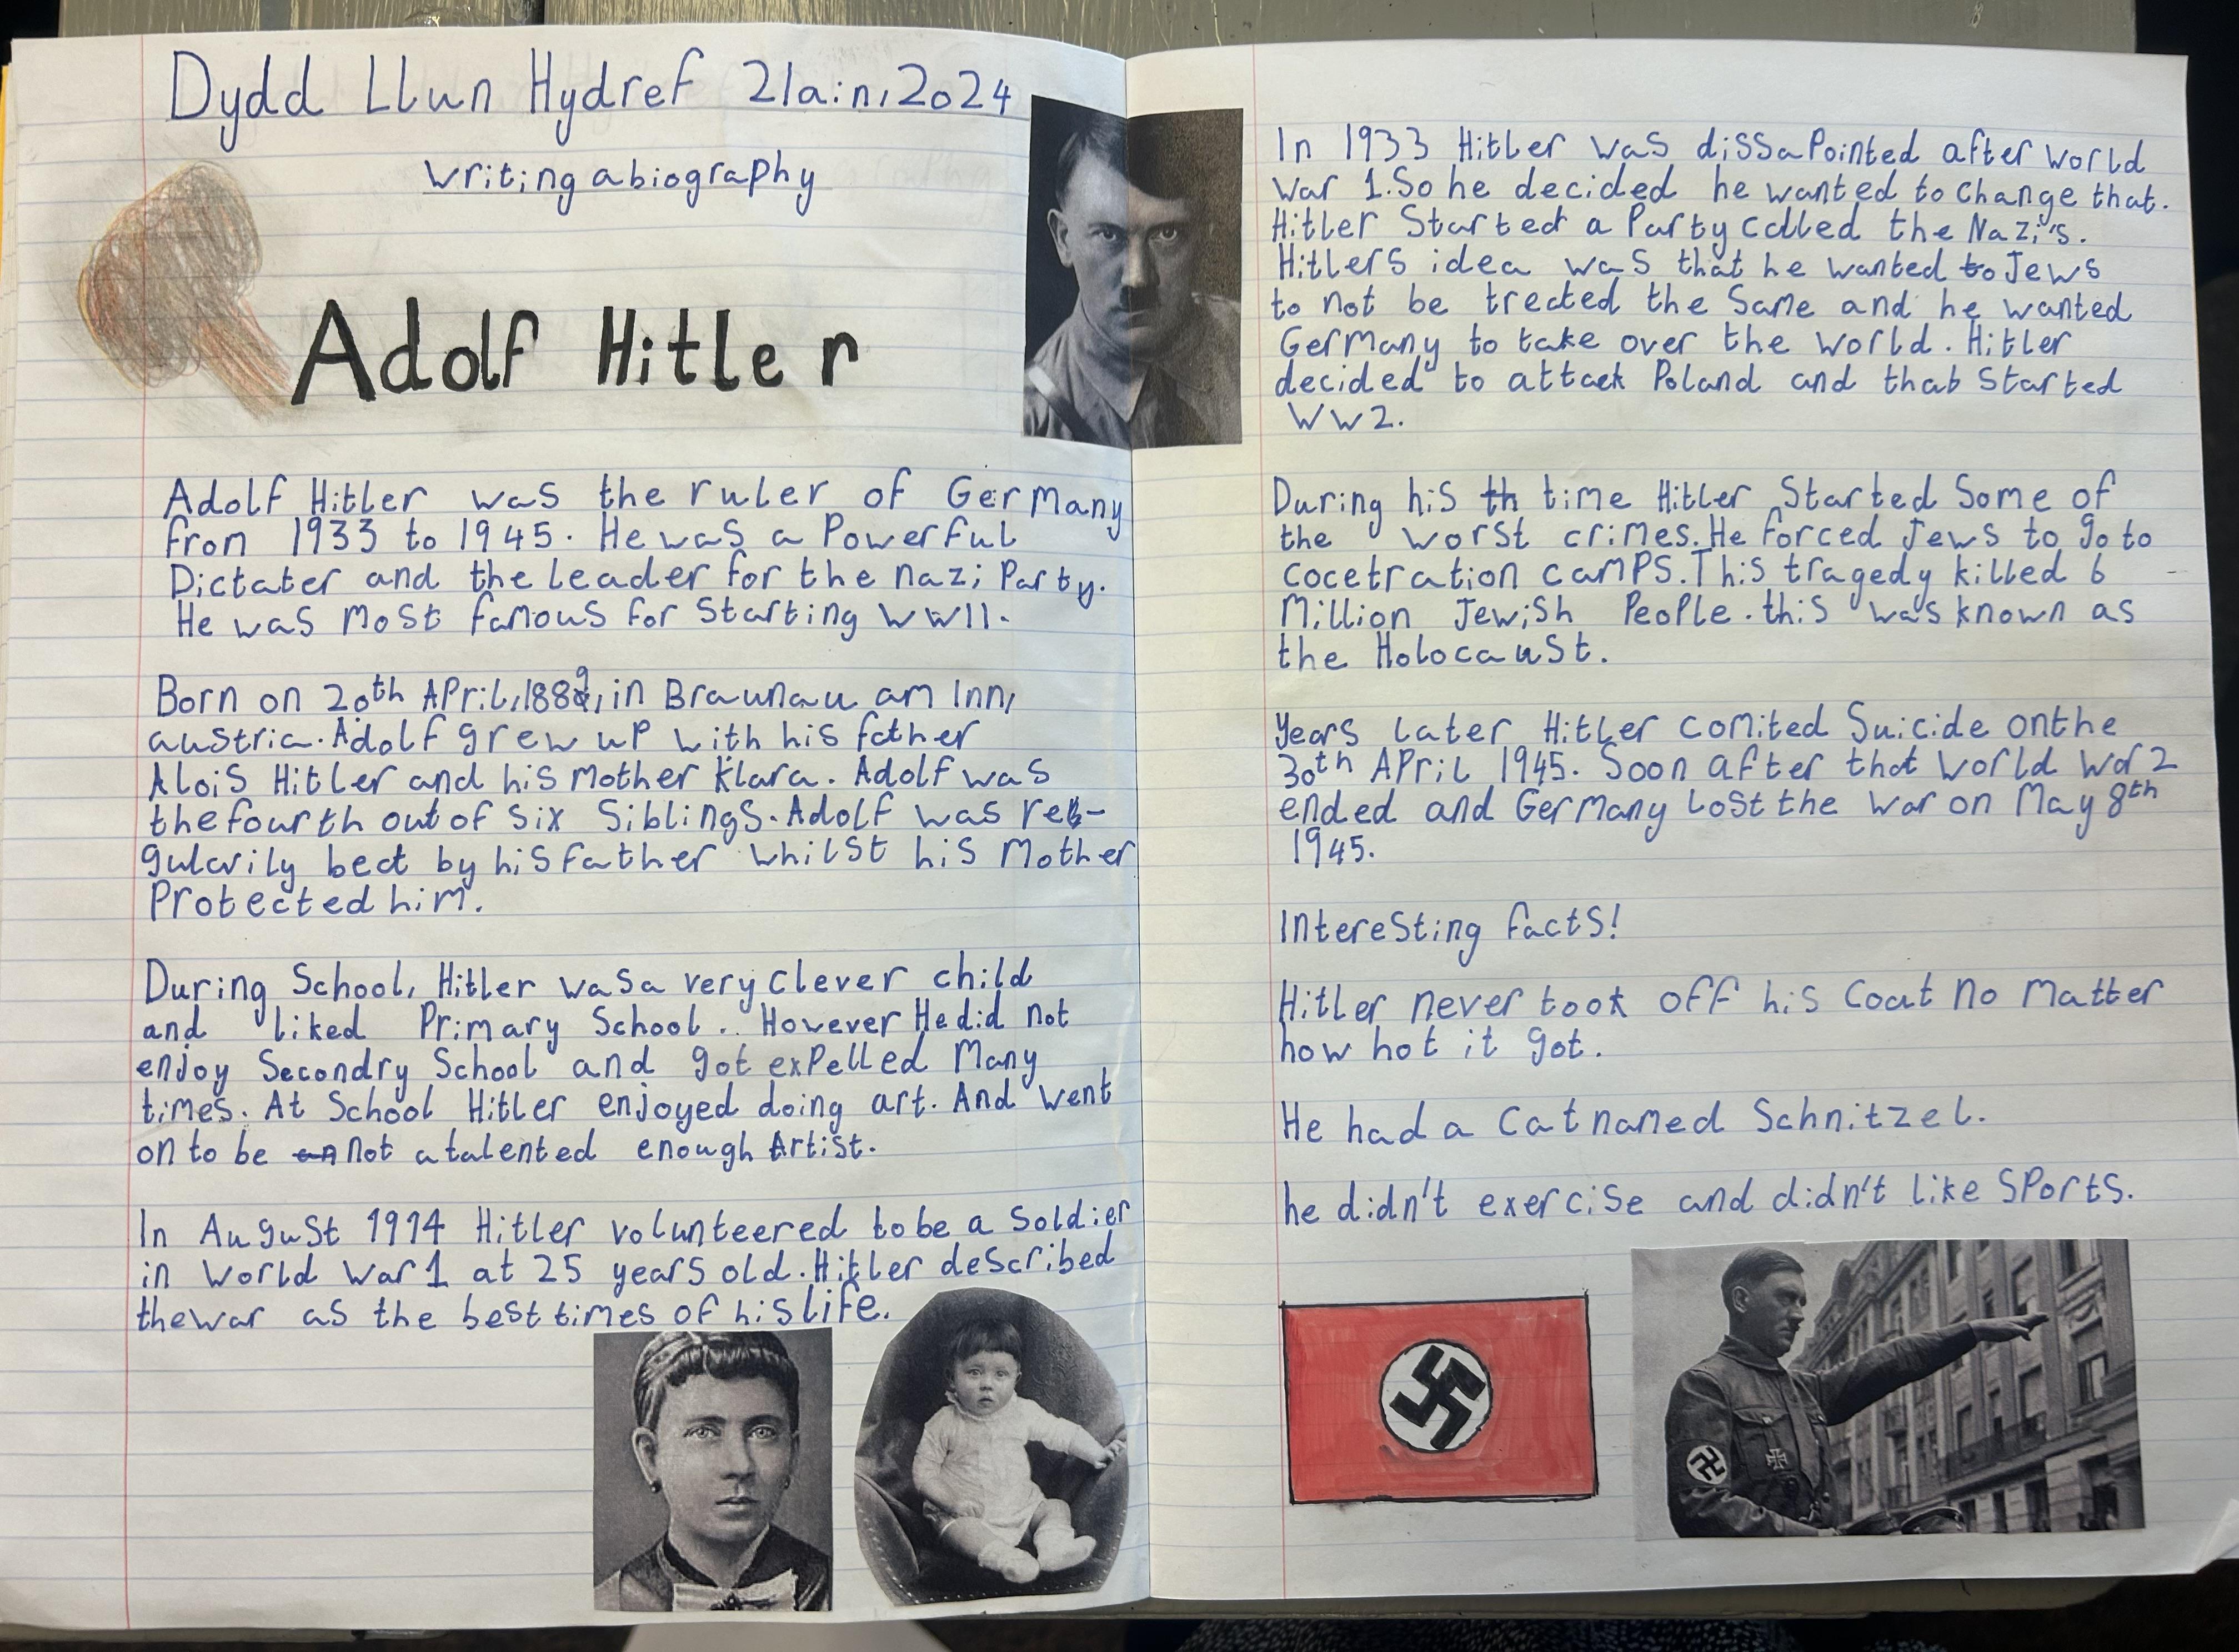 Dydd Llun Hydref 21ain, 2024
Writing a biography
Adolf Hitler
Adolf Hitler was the ruler of Germany
from 1933 to 1945. He was a Powerful
Dictater and the leader for the nazi Party.
He was most famous for starting WWII.
Born on 20th April, 1889, in Braunau am Inn,
austria. Adolf grew up with his father
Alois Hitler and his mother Klara. Adolf was
the fourth out of six siblings. Adolf was reg-
gularily beat by his father whilst his mother
Protected him.
During School, Hitler was a very clever child
and liked Primary School. However He did not
enjoy Secondry School and got expelled many
times. At School Hitler enjoyed doing art. And went
on to be an not a talented enough Artist.
In August 1914 Hitler volunteered to be a soldier
in World War 1 at 25 years old. Hitler described
the war as the best times of his life.
In 1933 Hitler was dissapointed after World
War 1. So he decided he wanted to change that.
Hitler Started a Party called the Nazi's.
Hitlers idea was that he wanted to Jews
to not be treated the same and he wanted
Germany to take over the world. Hitler
decided to attack Poland and that started
WW2.
During his th time Hitler Started Some of
the worst crimes. He forced Jews to go to
cocetration camps. This tragedy killed 6
Million Jewish People. this was known as
the Holocaust.
Years later Hitler comited Suicide on the
30th April 1945. Soon after that World War 2
ended and Germany lost the war on May 8th
1945.
Interesting facts!
Hitler never took off his coat no matter
how hot it got.
He had a cat named Schnitzel.
he didn't exercise and didn't like sports.